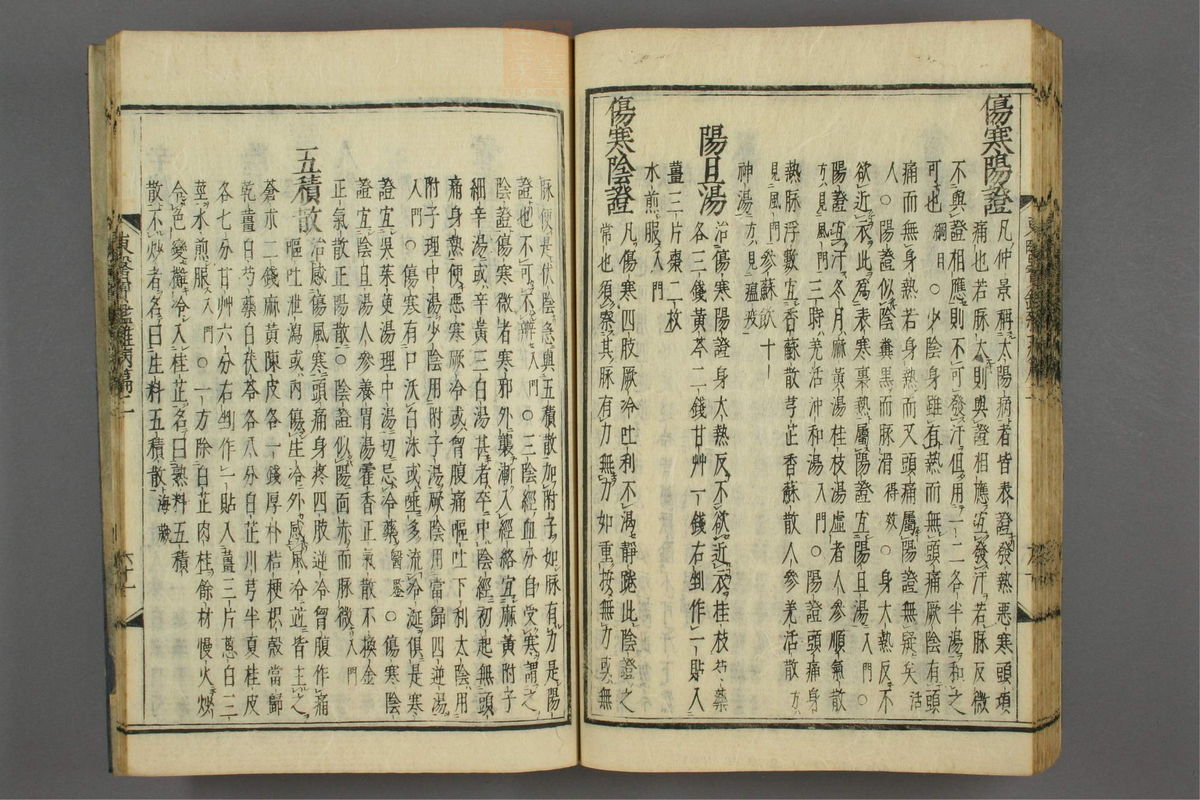 傷寒陽證 凡仲景稱太陽病者皆表證發熱惡寒頭項
痛也若脉大則與證相應宜發汗若脉反微
不與證相應則不可發汗但用一二各半湯和之
可也綱目○少陰身雖有熱而無頭痛厥陰有頭
痛而無身熱若身熱而又頭痛屬陽證無疑矣活
人○陽證似陰糞黑而脉滑得效○身大熱反不
欲近衣此爲表寒裏熱屬陽證宜陽旦湯入門○
陽證宜汗冬月麻黃湯桂枝湯虛者人參順氣散
方見風門三時羌活沖和湯入門○陽證頭痛身
熱脉浮數宜香蘇散芎芷香蘇散人參羌活散方
見風門參蘇飮十
神湯方見瘟疫
陽旦湯 治傷寒陽證身大熱反不欲近衣桂枝芍藥
各三錢黃芩二錢甘艸一錢右剉作一貼入
薑三片棗二枚
水煎服入門
傷寒陰證 凡傷寒四肢厥冷吐利不渴靜踡此陰證之
常也須察其脉有力無力如重按無力或無
脉便是伏陰急與五積散加附子如脉有力是陽
證也不可不辨入門○三陰經血分自受寒謂之
陰證傷寒微者寒邪外襲漸入經絡宜麻黃附子
細辛湯或辛黃三白湯甚者卒中陰經初起無頭
痛身熱便惡寒厥冷或胷腹痛嘔吐下利太陰用
附子理中湯少陰用附子湯厥陰用當歸四逆湯
入門○傷寒有口沃白沫或唾多流冷涎俱是寒
證宜吳茱萸湯理中湯切忌冷藥醫鑒○傷寒陰
證宜陰旦湯人參養胃湯藿香正氣散不換金
正氣散正陽散○陰證似陽面赤而脉微入門
五積散 治感傷風寒頭痛身疼四肢逆冷胷腹作痛
嘔吐泄瀉或內傷生冷外感風冷並皆主之
蒼朮二錢麻黃陳皮各一錢厚朴桔梗枳殼當歸
乾薑白芍藥白茯苓各八分白芷川芎半夏桂皮
各七分甘艸六分右剉作一貼入薑三片葱白三
莖水煎服入門○一方除白芷肉桂餘材慢火炒
令色變攤冷入桂芷名曰熟料五積
散不炒者名曰生料五積散海藏